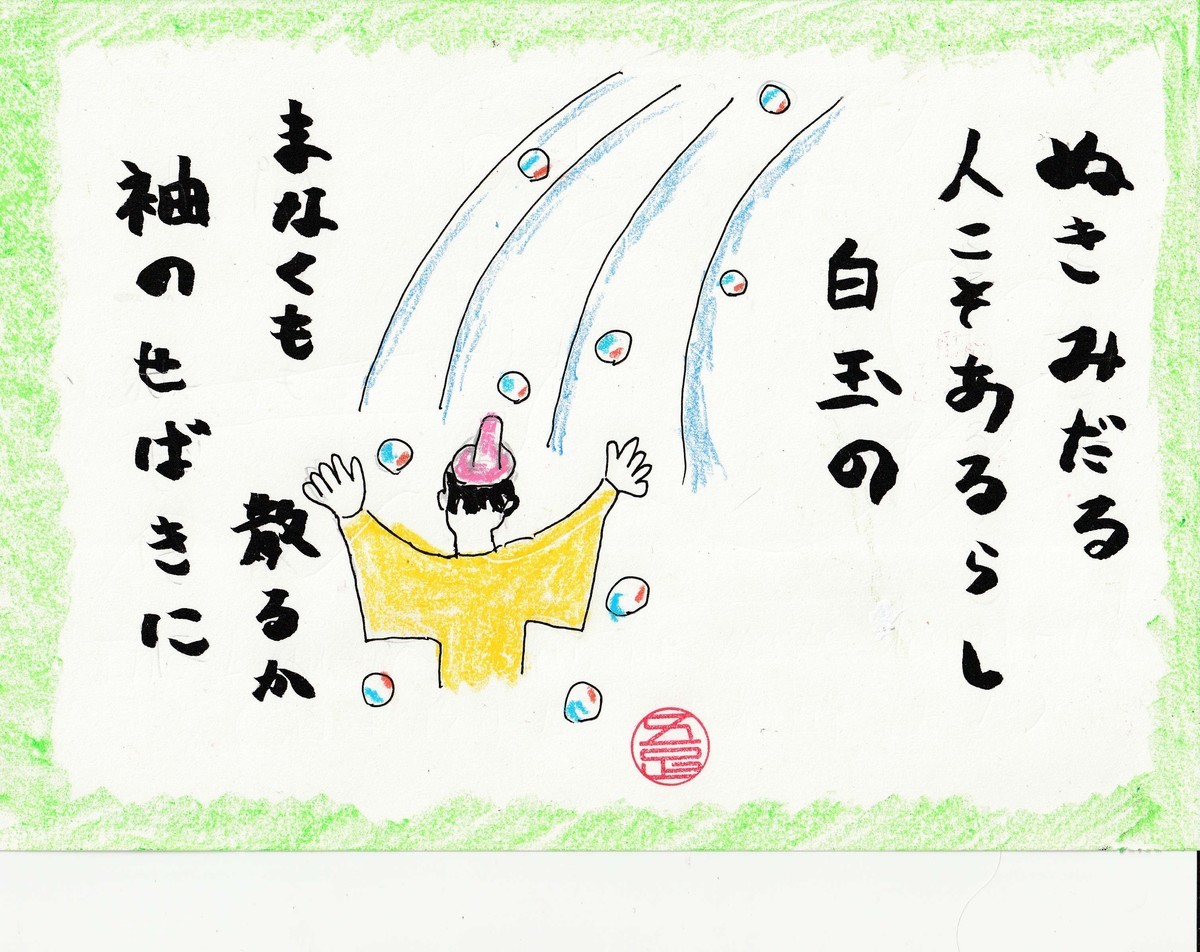 ぬきみだる
人こそあるらし
白玉の
まなくも
散るか
袖のせばきに